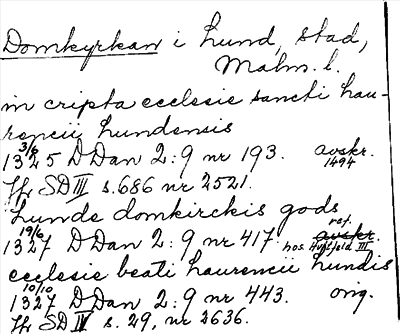 Domkyrkan i Lund, stad,
Malm. l.
in cripta ecclesie sancti Lau-
rencii Lundensis
3/6
1325 DDan 2:9 nr 193. avskr.
1494
Jfr SD III s. 686 nr 2521.
Lunde domkirckis gods
19/6 ref.
1327 DDan 2:9 nr 417. avskr.
hos Hvitfeld III
ecclesie beati Laurencii Lundis
10/10
1327 DDan 2:9 nr 443. orig.
Jfr SD IV s. 29, nr 2636.